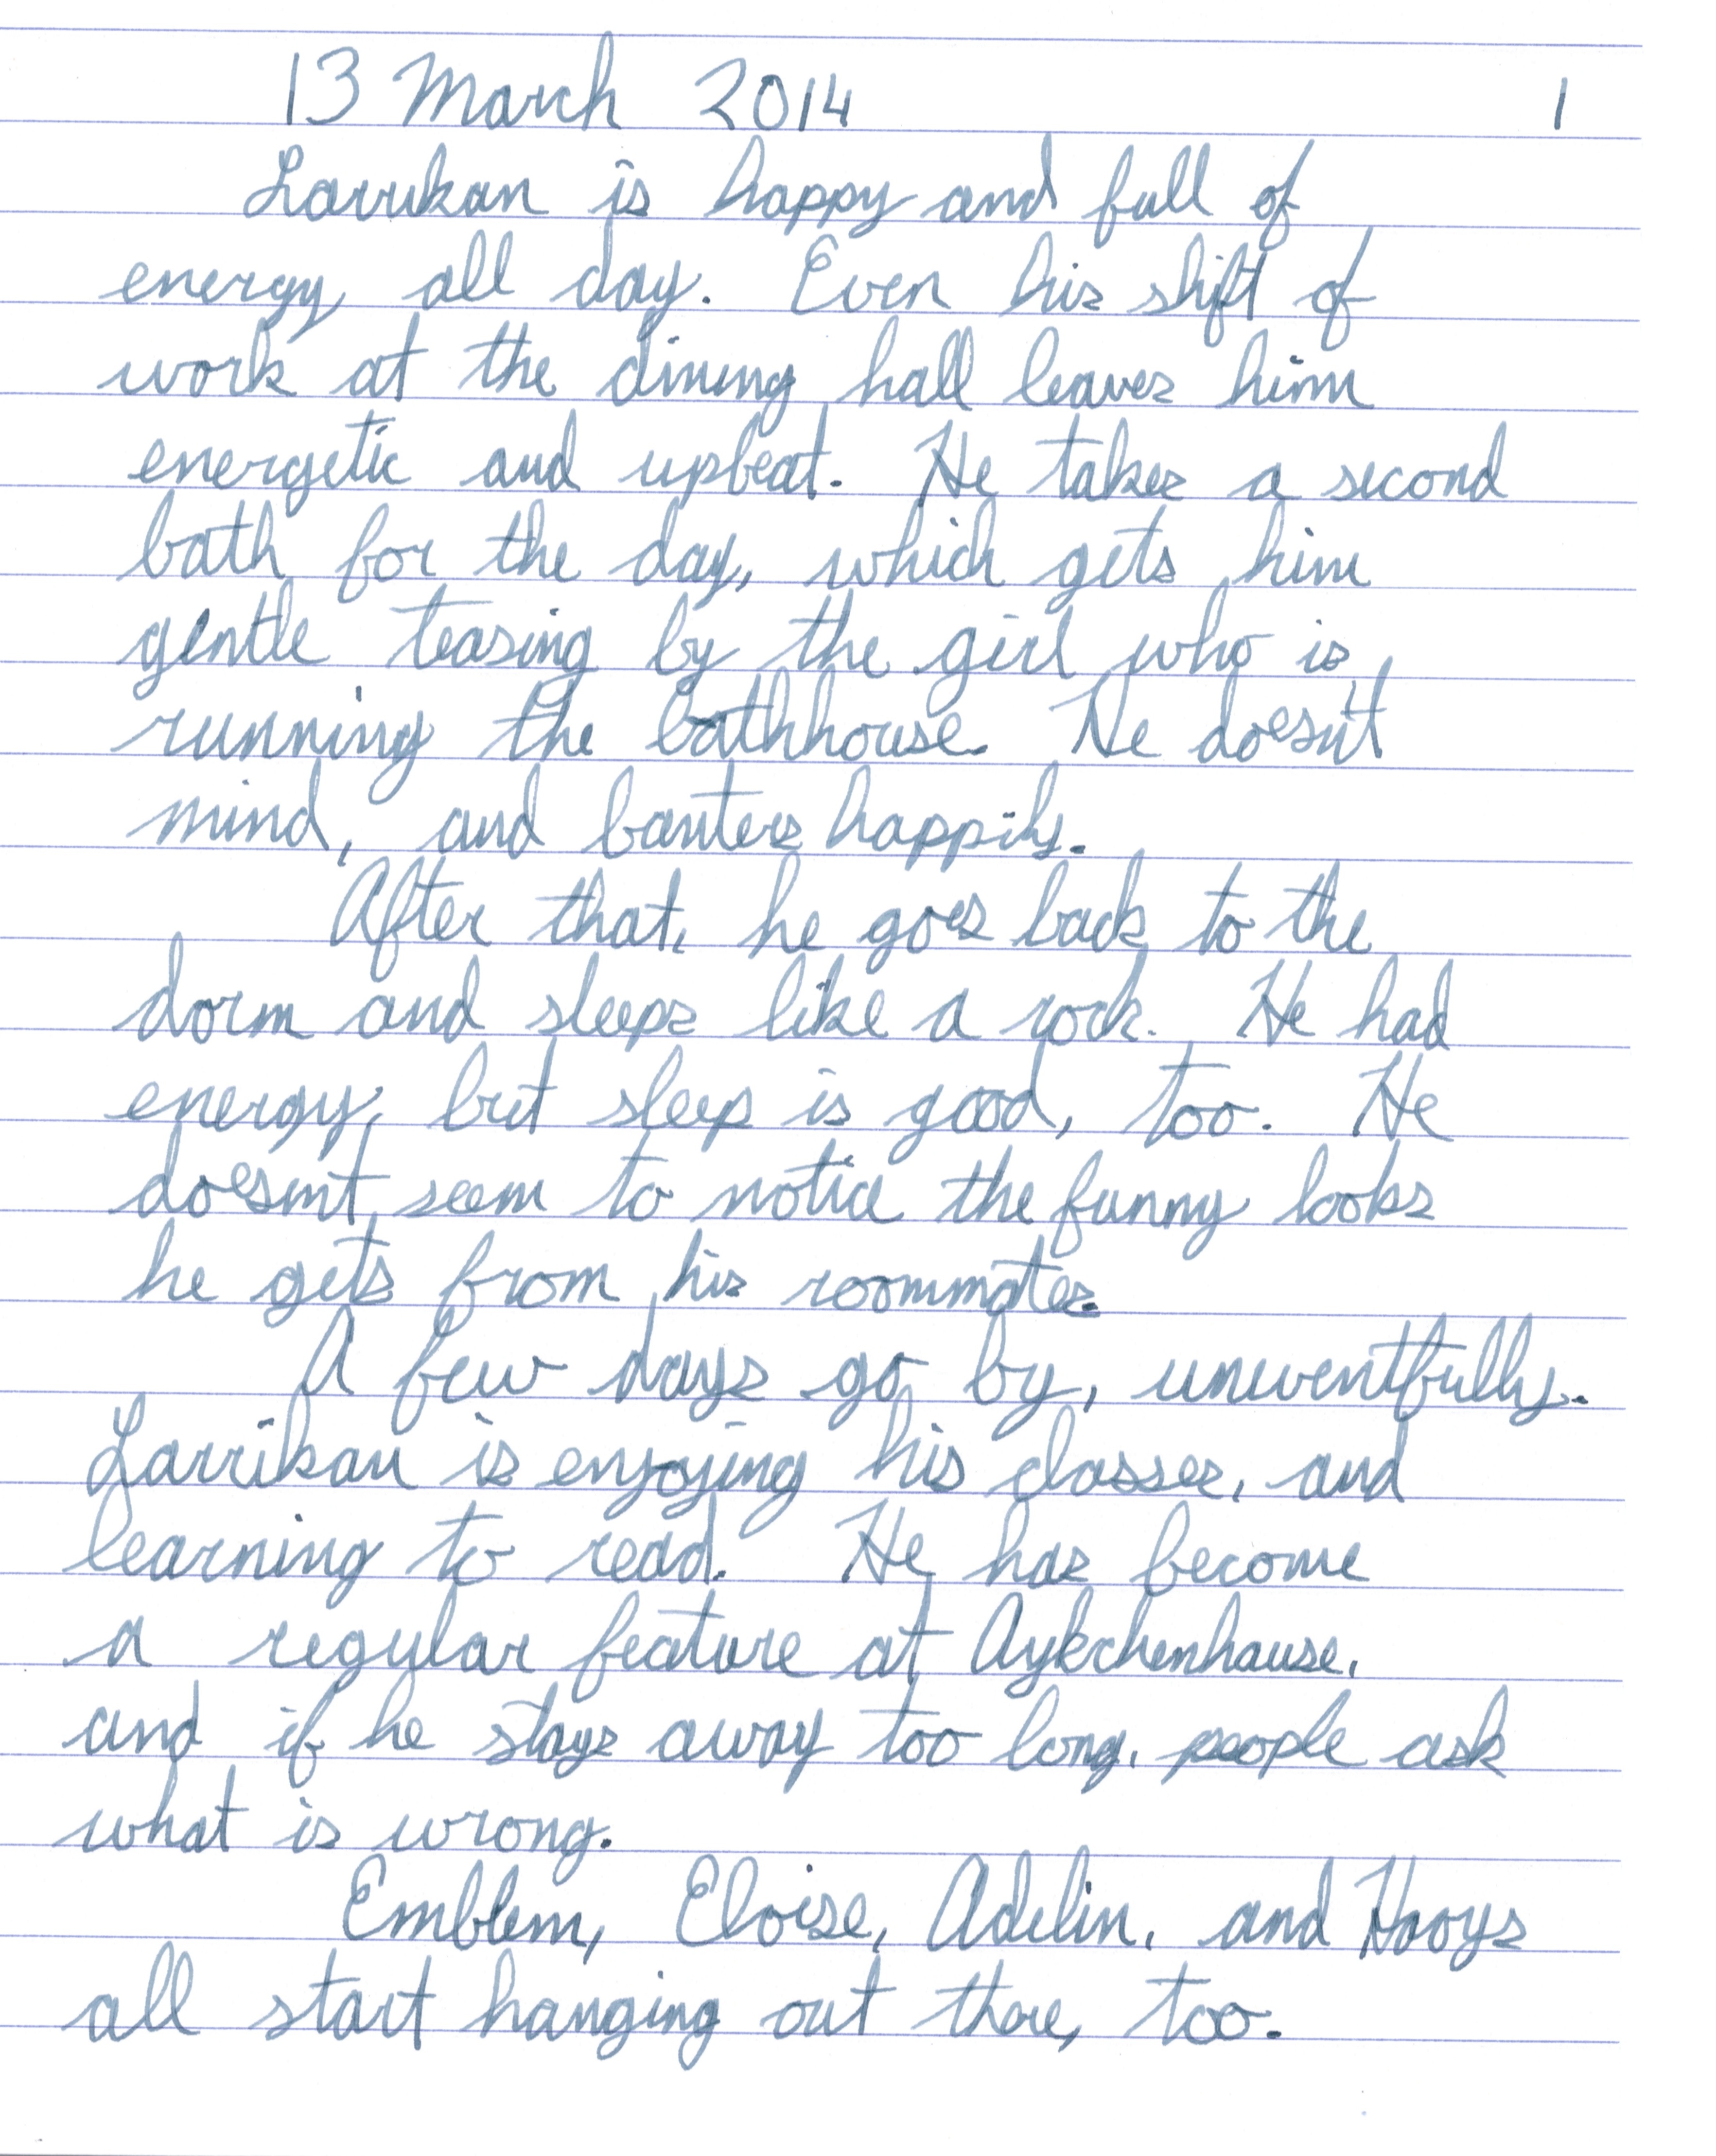 13 March 2014 1
Larrikan is happy and full of
energy all day. Even his shift of
work at the dining hall leaves him
energetic and upbeat. He takes a second
bath for the day, which gets him
gentle teasing by the girl who is
running the bathhouse. He doesn't
mind, and banters happily.
After that, he goes back to the
dorm and sleeps like a rock. He had
energy, but sleep is good, too. He
doesn't seem to notice the funny looks
he gets from his roommates.
A few days go by, uneventfully.
Larrikan is enjoying his classes, and
learning to read. He has become
a regular feature at Aykchenhause,
and if he stays away too long, people ask
what is wrong.
Emblem, Eloise, Adelin, and
all start hanging out there, too.